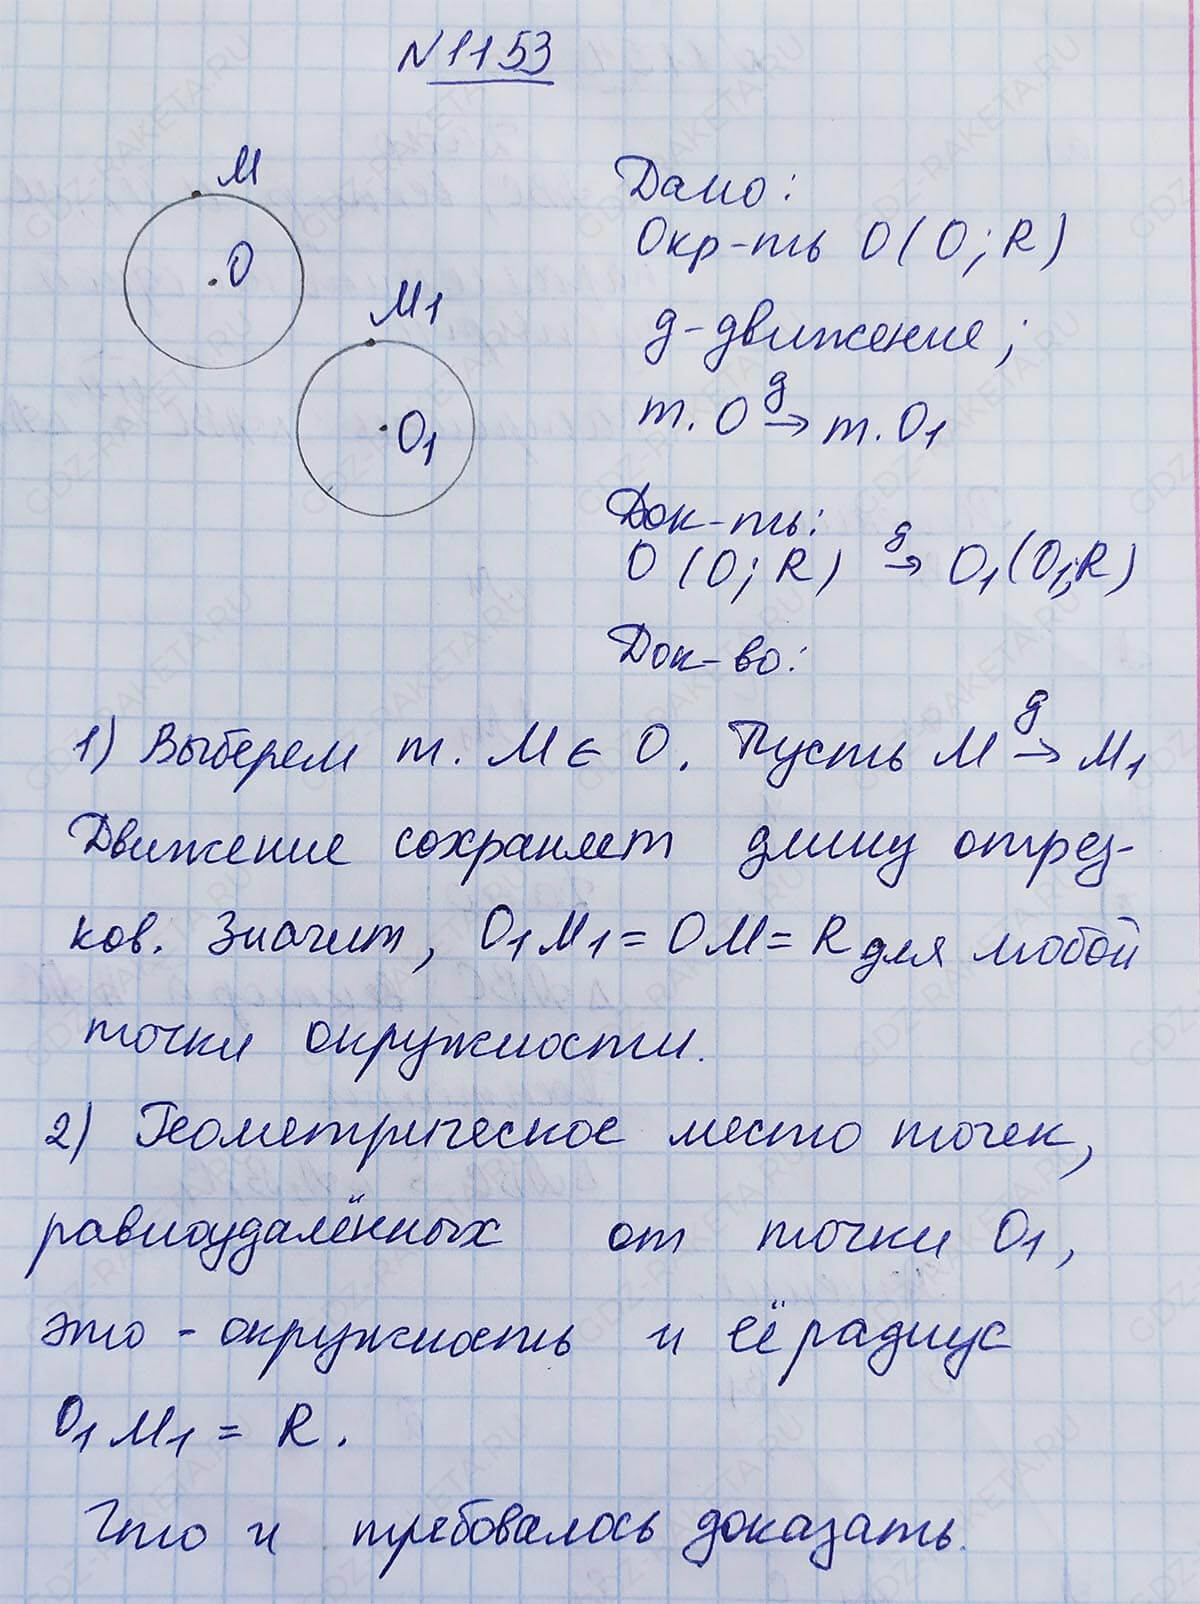 N1153
M
O
M1
O1
Дано:
Окр-ть O(O; R)
g-движение;
т. O →g т. O1
Док-ть:
O (O; R) →g O1(O1;R)
Док-во:
1) Выберем т. M ∈ O. Пусть M →g M1
Движение сохраняет длину отрез-
ков. Значит, O1M1 = OM = R для любой
точки окружности.
2) Геометрическое место точек,
равноудалённых от точки O1,
это - окружность и её радиус
O1M1 = R.
Что и требовалось доказать.
GDZ-RAKETA.RU